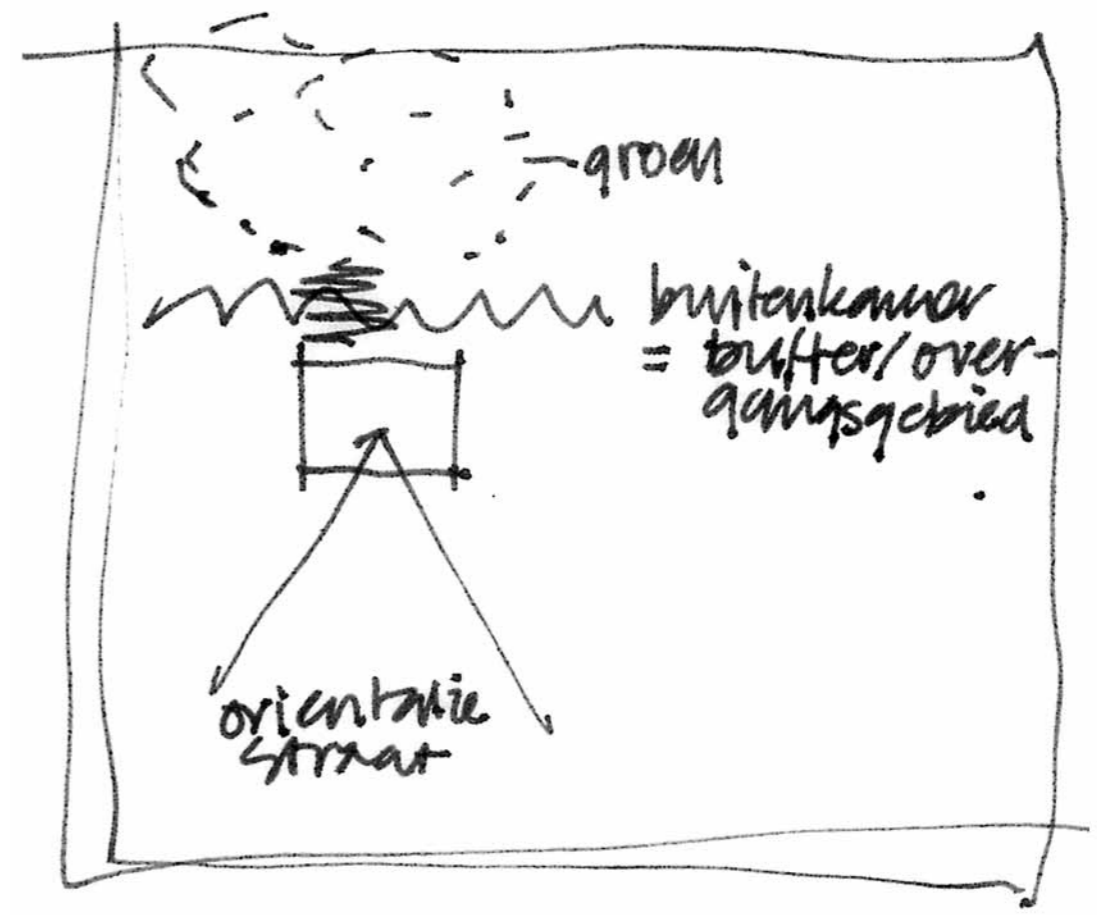 groen
buitenkamer
= buffer/over-
gangsgebied
orientatie
straat